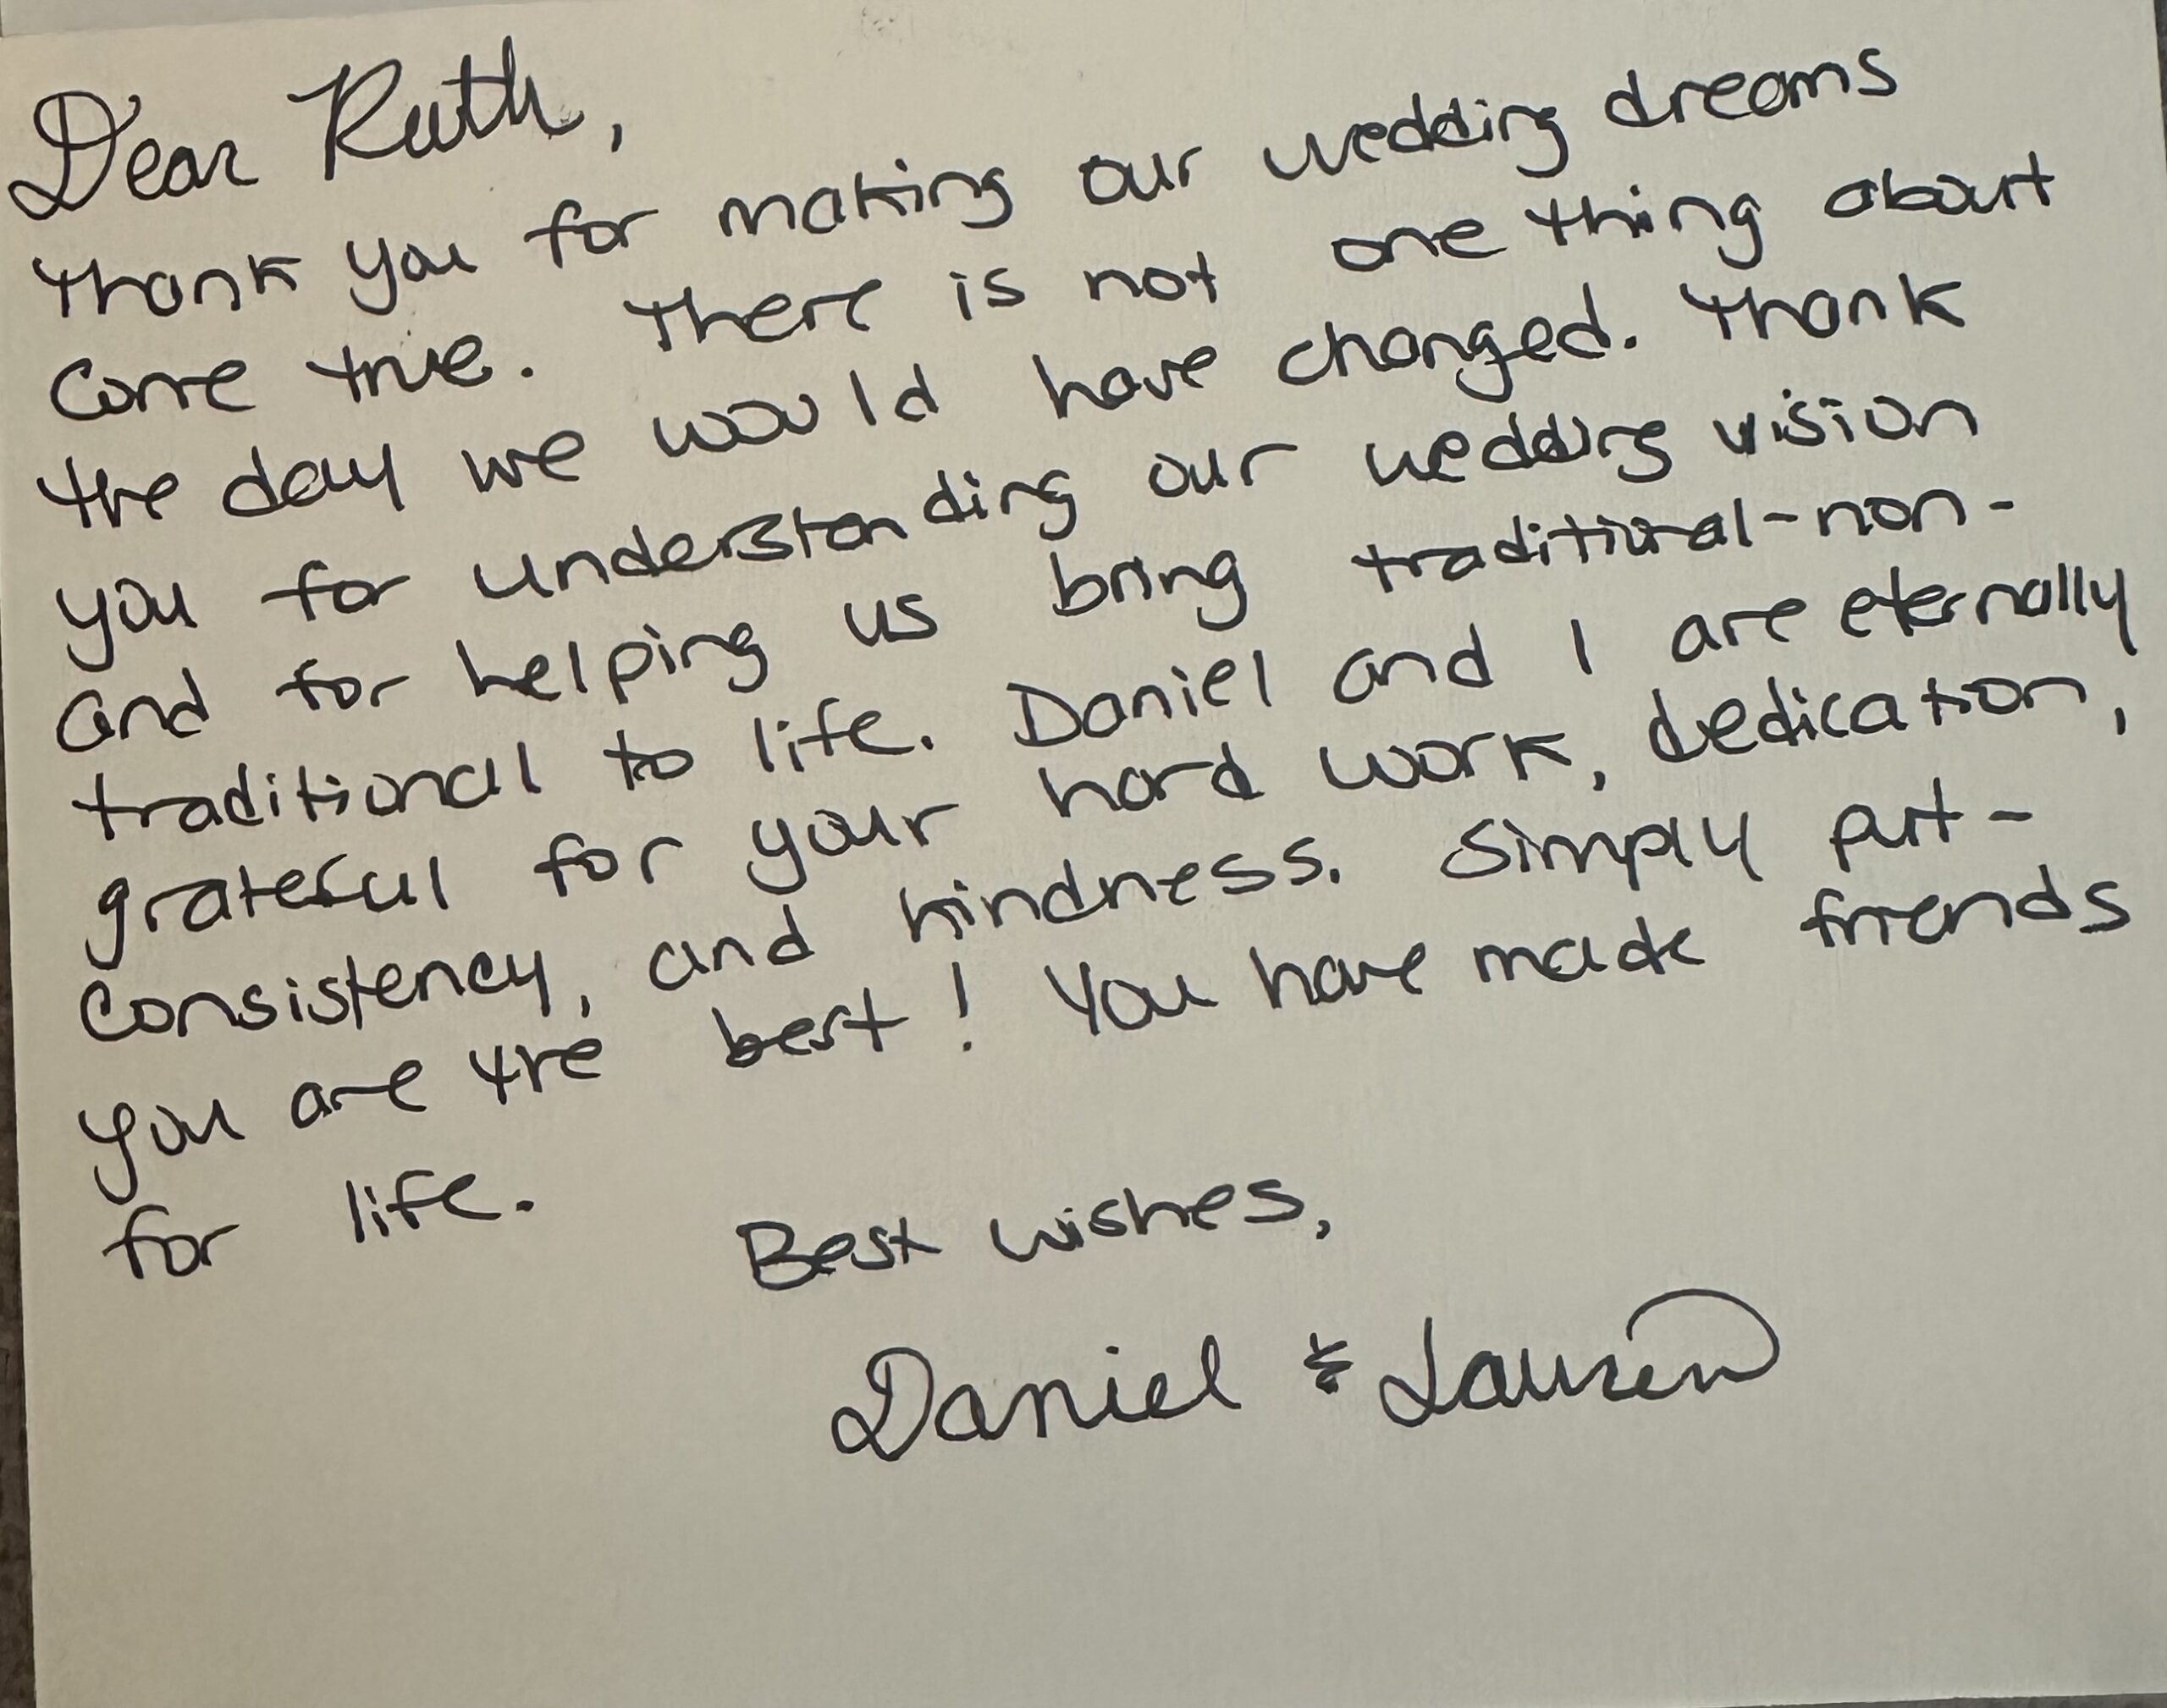 Dear Ruth,
Thank you for making our wedding dreams
come true. There is not one thing about
the day we would have changed. Thank
you for understanding our wedding vision
and for helping us bring traditional-non-
traditional to life. Daniel and I are eternally
grateful for your hard work, dedication,
consistency, and kindness. Simply put-
you are the best! You have made friends
for life.
Best wishes,
Daniel & Lauren